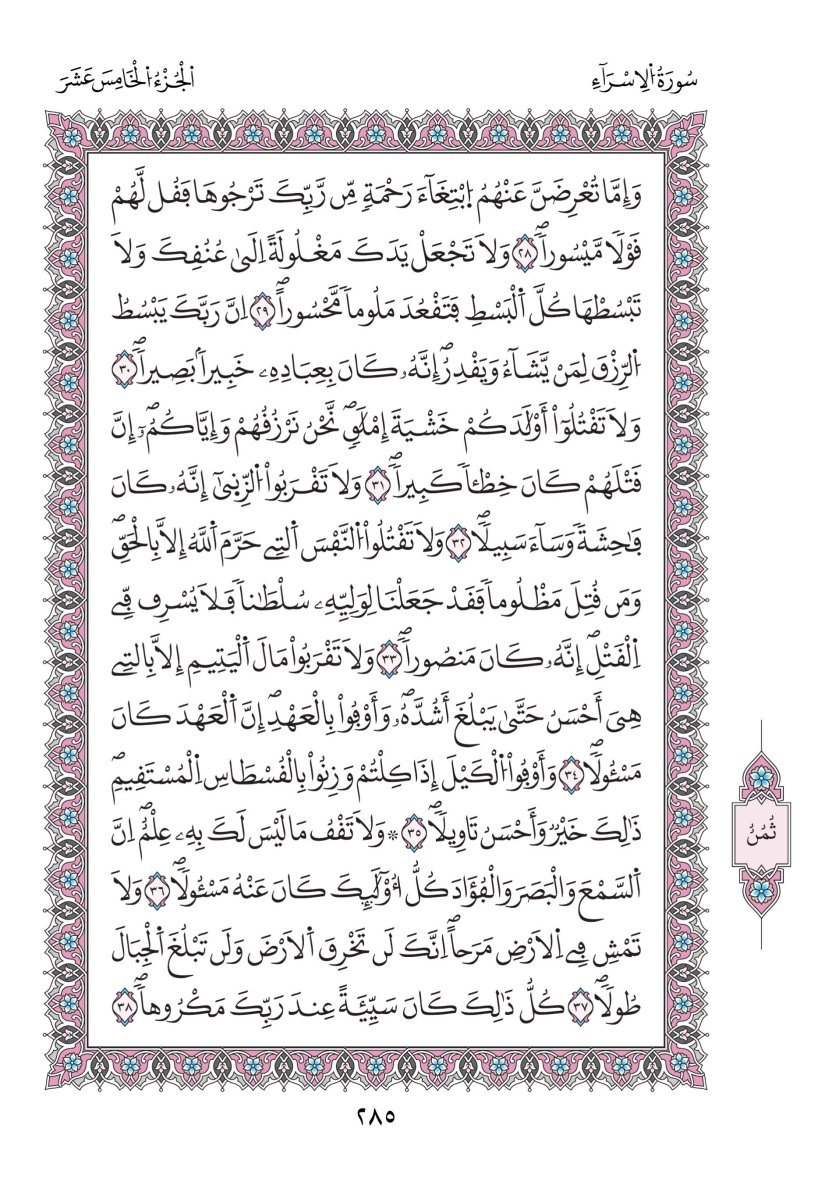 سُورَةُ اُ۬لِاسْرَآءِ
اُ۬لْجُزْءُ اُ۬لْخَامِسَ عَشَرَ
وَإِمَّا تُعْرِضَنَّ عَنْهُمُ اُ۪بْتِغَآءَ رَحْمَةٖ مِّن رَّبِّكَ تَرْجُوهَا فَقُل لَّهُمْ
قَوْلاٗ مَّيْسُوراٗۖ ٢٨ وَلَا تَجْعَلْ يَدَكَ مَغْلُولَةً اِلَىٰ عُنُقِكَ وَلَا
تَبْسُطْهَا كُلَّ اَ۬لْبَسْطِ فَتَقْعُدَ مَلُوماٗ مَّحْسُوراًۖ ٢٩ اِنَّ رَبَّكَ يَبْسُطُ
اُ۬لرِّزْقَ لِمَنْ يَّشَآءُ وَيَقْدِرُۖ إِنَّهُۥ كَانَ بِعِبَادِهِۦ خَبِيراَۢ بَصِيراٗۖ ٣٠
وَلَا تَقْتُلُوٓاْ أَوْلَٰدَكُمْ خَشْيَةَ إِمْلَٰقٖۖ نَّحْنُ نَرْزُقُهُمْ وَإِيَّاكُمُۥٓۖ إِنَّ
قَتْلَهُمْ كَانَ خِطْـٔاٗ كَبِيراٗۖ ٣١ وَلَا تَقْرَبُواْ اُ۬لزِّنَىٰٓ إِنَّهُۥ كَانَ
فَٰحِشَةٗ وَسَآءَ سَبِيلاٗۖ ٣٢ وَلَا تَقْتُلُواْ اُ۬لنَّفْسَ اَ۬لتِے حَرَّمَ اَ۬للَّهُ إِلَّا بِالْحَقِّۖ
وَمَن قُتِلَ مَظْلُوماٗ فَقَدْ جَعَلْنَا لِوَلِيِّهِۦ سُلْطَٰناٗ فَلَا يُسْرِف فِّے
اِ۬لْقَتْلِۖ إِنَّهُۥ كَانَ مَنصُوراٗۖ ٣٣ وَلَا تَقْرَبُواْ مَالَ اَ۬لْيَتِيمِ إِلَّا بِالتِے
هِيَ أَحْسَنُ حَتَّىٰ يَبْلُغَ أَشُدَّهُۥۖ وَأَوْفُواْ بِالْعَهْدِۖ إِنَّ اَ۬لْعَهْدَ كَانَ
مَسْـُٔولاٗۖ ٣٤ وَأَوْفُواْ اُ۬لْكَيْلَ إِذَا كِلْتُمْ وَزِنُواْ بِالْقُسْطَاسِ اِ۬لْمُسْتَقِيمِۖ
ذَٰلِكَ خَيْرٞ وَأَحْسَنُ تَاوِيلاٗۖ ٣٥ ۞ وَلَا تَقْفُ مَا لَيْسَ لَكَ بِهِۦ عِلْمٌۖ اِنَّ
اَ۬لسَّمْعَ وَالْبَصَرَ وَالْفُؤَادَ كُلُّ أُوْلَٰٓئِكَ كَانَ عَنْهُ مَسْـُٔولاٗۖ ٣٦ وَلَا
تَمْشِ فِے اِ۬لَارْضِ مَرَحاًۖ اِنَّكَ لَن تَخْرِقَ اَ۬لَارْضَ وَلَن تَبْلُغَ اَ۬لْجِبَالَ
طُولاٗۖ ٣٧ كُلُّ ذَٰلِكَ كَانَ سَيِّئَةً عِندَ رَبِّكَ مَكْرُوهاٗۖ ٣٨
ثُمُنُ
٢٨٥